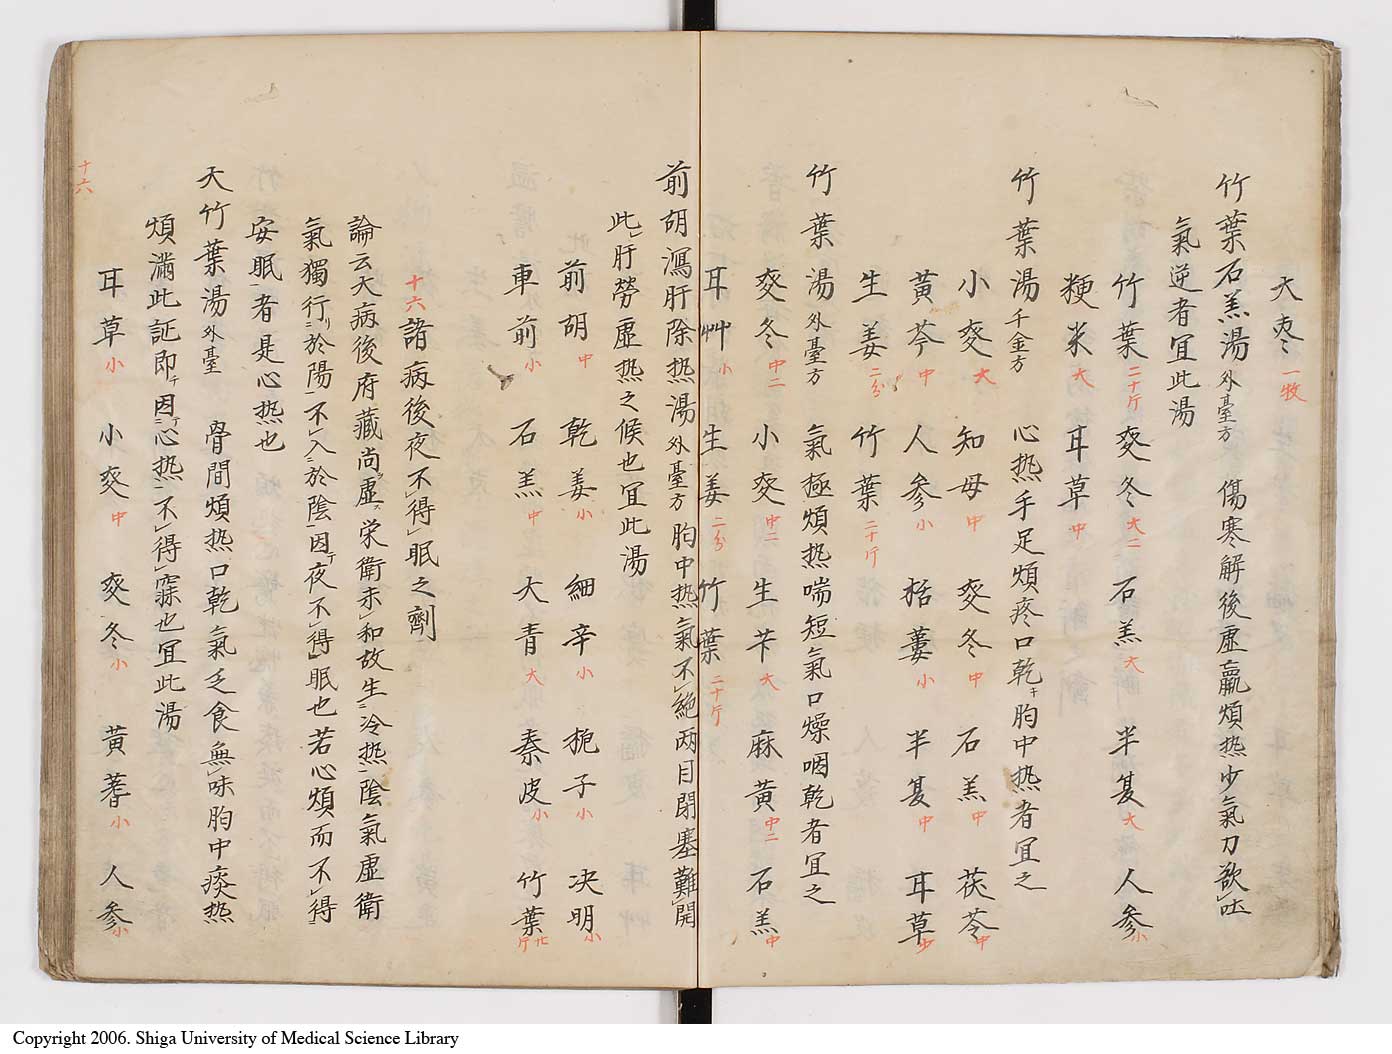 大枣 一枚
竹葉石羔湯 外臺方 傷寒解後虛羸煩热少氣力欲吐
氣逆者冝此湯
竹葉 二十斤 麥冬 大二 石羔 大 半夏 大 人参 小
粳米 大 耳草 中
竹葉湯 千金方 心热手足煩疼口乾キ胸中热者冝之
小麥 大 知母 中 麥冬 中 石羔 中 茯苓 中
黄芩 中 人参 小 栝蔞 小 半夏 中 耳草 少
生姜 二分 竹葉 二十斤
竹葉湯 外臺方 氣極煩热喘短氣口燥咽乾者冝之
麥冬 中二 小麥 中二 生苄 大 麻黄 中二 石羔 中
耳艸 小 生姜 二分 竹葉 二十斤
前胡瀉肝除热湯 外臺方 胸中热氣不絶两目閉塞難開
此肝勞虛热之候也冝此湯
前胡 中 乾姜 小 細辛 小 梔子 小 决明 小
車前 小 石羔 中 大青 大 秦皮 小 竹葉 廿斤
十六 諸病後夜不得眠之劑
論云大病後府藏尚虛荣衛未和故生冷热陰氣虛衛
氣獨行リ二於陽一不入二於陰一因テ夜不得眠也若心煩而不得二
安眠一者是心热也
大竹葉湯 外臺 骨間煩热口乾氣乏食無味胸中痰热
煩滿此証即チ因テ二心热一不得寐也冝此湯
耳草 小 小麥 中 麥冬 小 黄蓍 小 人参 小
十六
Copyright 2006. Shiga University of Medical Science Library